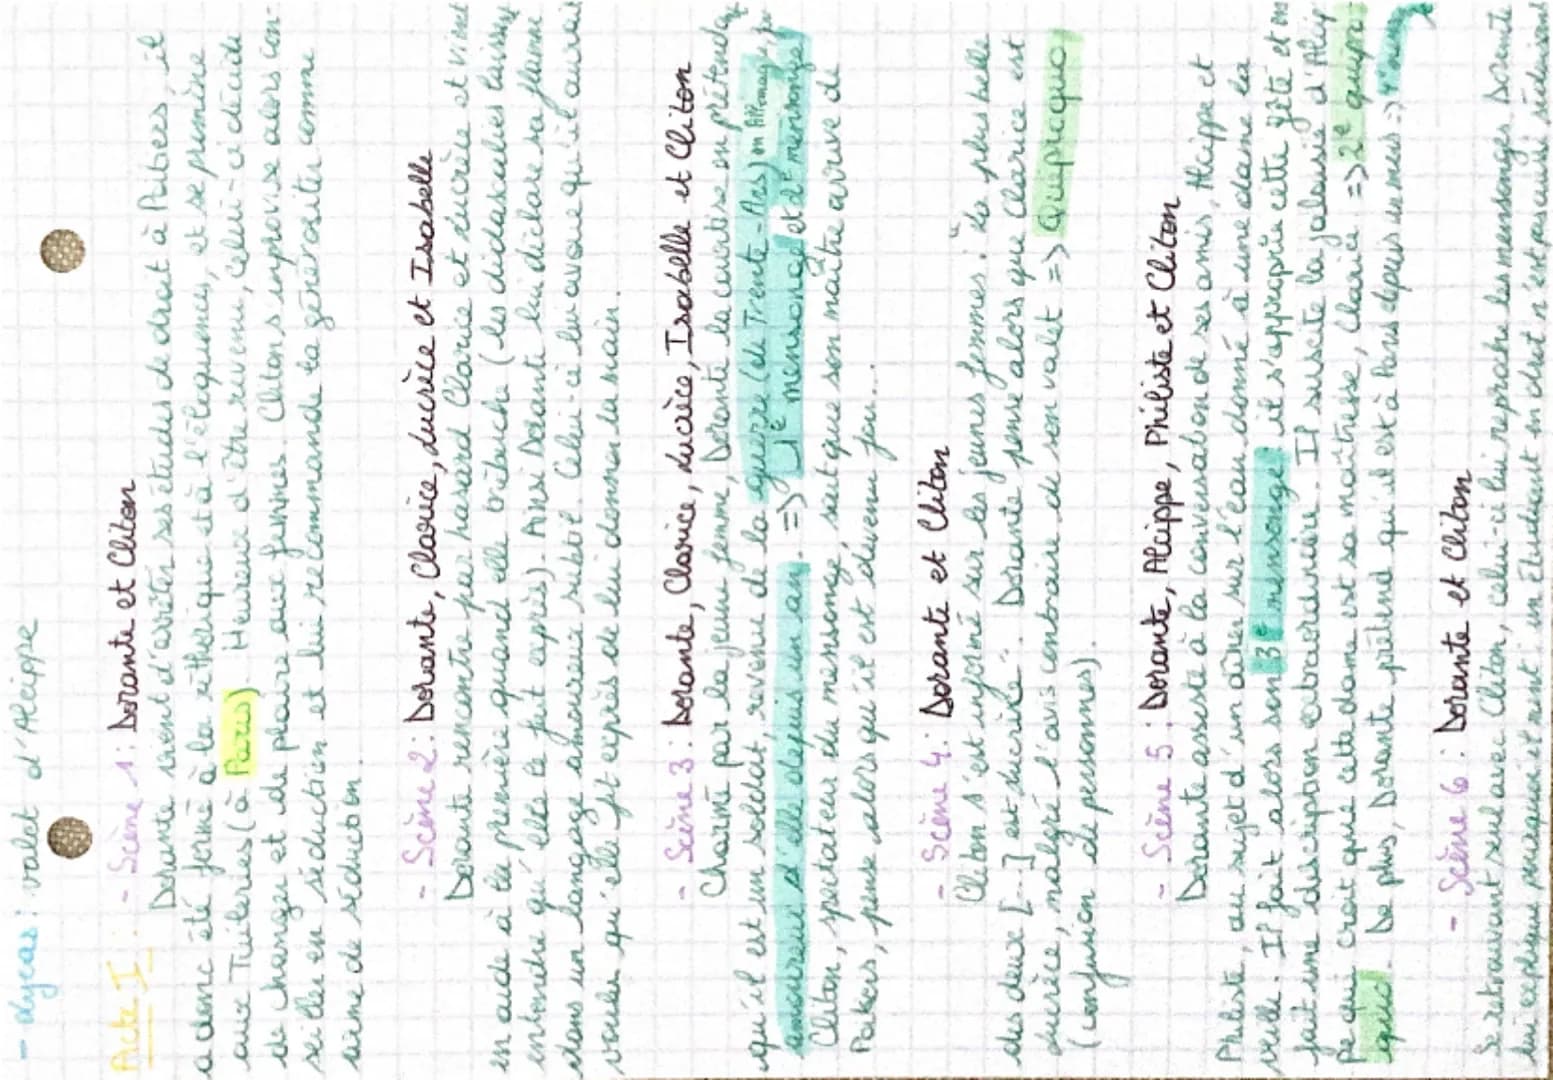 - Lycas : valet d'Alcippe
Acte I : - Scène 1 : Dorante et Cliton
Dorante vient d'arrêter ses études de droit à Poitiers, il
a donc été formé à la réthorique et à l'éloquence, et se promène
aux Tuileries (à Paris). Heureux d'être revenu, celui-ci décide
de changer et de plaire aux femmes. Cliton s'improvise alors con-
seiller en séduction et lui recommande la générosité comme
arme de séduction.
- Scène 2 : Dorante, Clarice, Lucrèce et Isabelle
Dorante rencontre par hasard Clarice et Lucrèce et vient
en aide à la première quand elle trébuche (les didascalies laissent
entendre qu'elle le fait exprès). Ainsi Dorante lui déclare sa flamme
dans un langage amoureux subtil. Celui-ci lui avoue qu'il aurait
voulu qu'elle fit exprès de lui donner la main.
- Scène 3 : Dorante, Clarice, Lucrèce, Isabelle et Cliton
Charmé par la jeune femme, Dorante la courtise en prétendant
qu'il est un soldat, revenu de la guerre (de Trente-Ans) en Allemagne,
amoureux d'elle depuis un an. => 1e mensonge et 2e mensonge
Cliton, spectateur du mensonge, sait que son maître arrive de
Poitiers, pense alors qu'il est devenu fou...
- Scène 4 : Dorante et Cliton
Cliton s'est informé sur les jeunes femmes : "la plus belle
des deux [...] est Lucrèce". Dorante pense alors que Clarice est
Lucrèce, malgré l'avis contraire de son valet => Quiproquo
(confusion de personnes).
- Scène 5 : Dorante, Alcippe, Philiste et Cliton
Dorante assiste à la conversation de ses amis, Alcippe et
Philiste, au sujet d'un dîner sur l'eau donné à une dame la
veille. Il fait alors son 3e mensonge : il s'approprie cette fête et en
fait une description extraordinaire. Il suscite la jalousie d'Alcip-
pe qui croit que cette dame est sa maîtresse, Clarice => 2e quipro-
quo. De plus, Dorante prétend qu'il est à Paris depuis un mois =>
- Scène 6 : Dorante et Cliton
Se retrouvant seul avec Cliton, celui-ci lui reproche les mensonges. Dorante
lui explique pourquoi il ment : un étudiant en droit n'est pas aussi séduisant